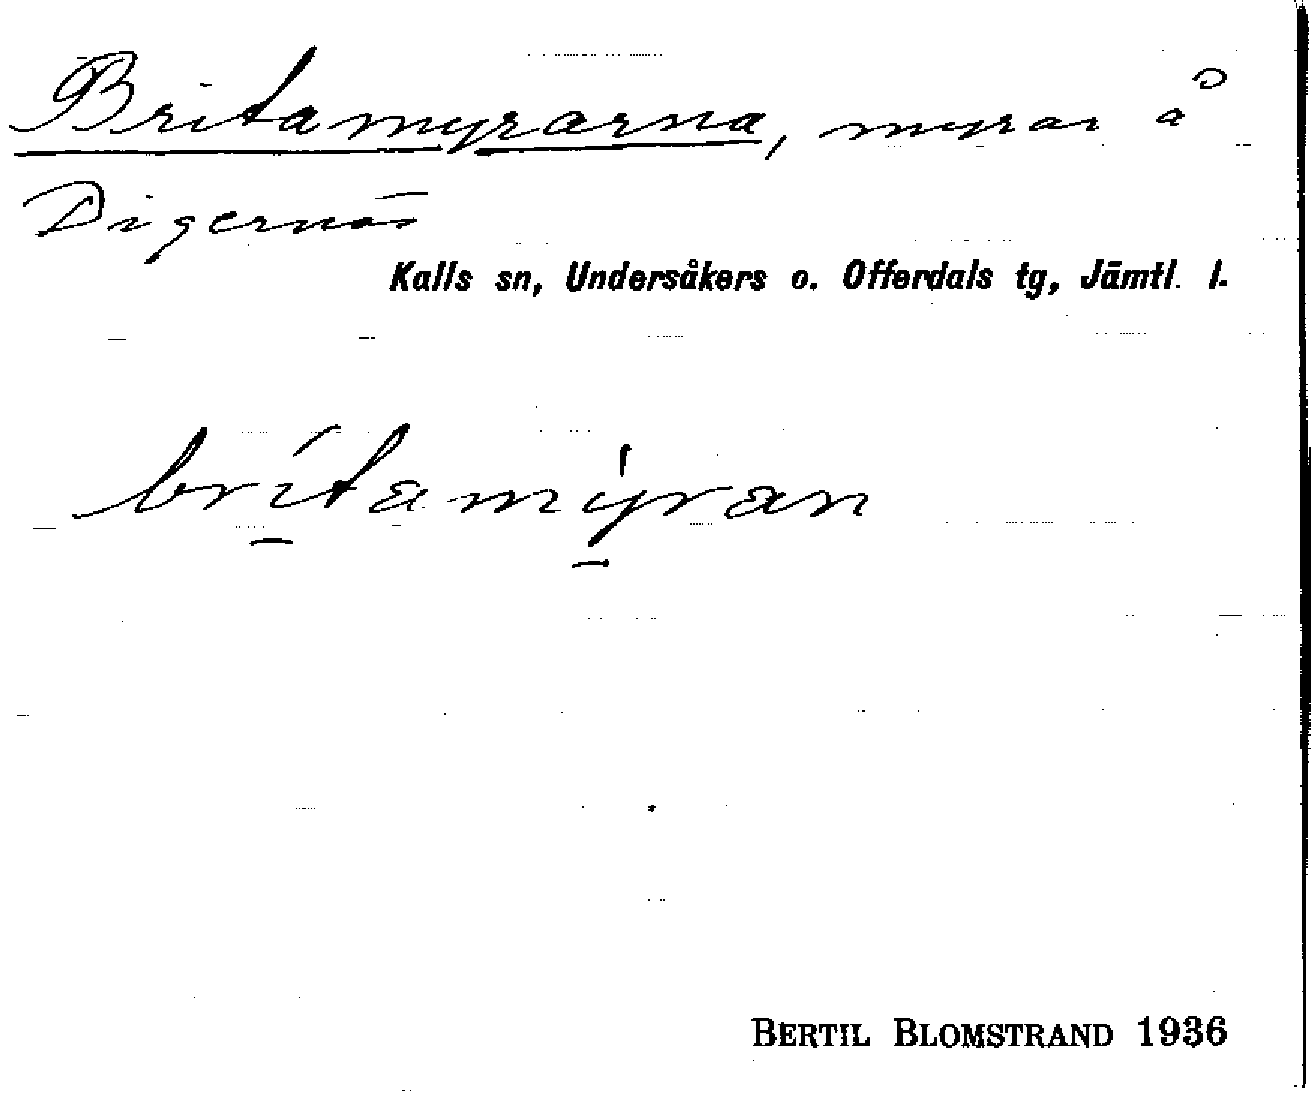 Britamyrarna, myrar å
Digernäs
Kalls sn, Undersåkers o. Offerdals tg, Jämtl. l.
brítamýran
BERTIL BLOMSTRAND 1936